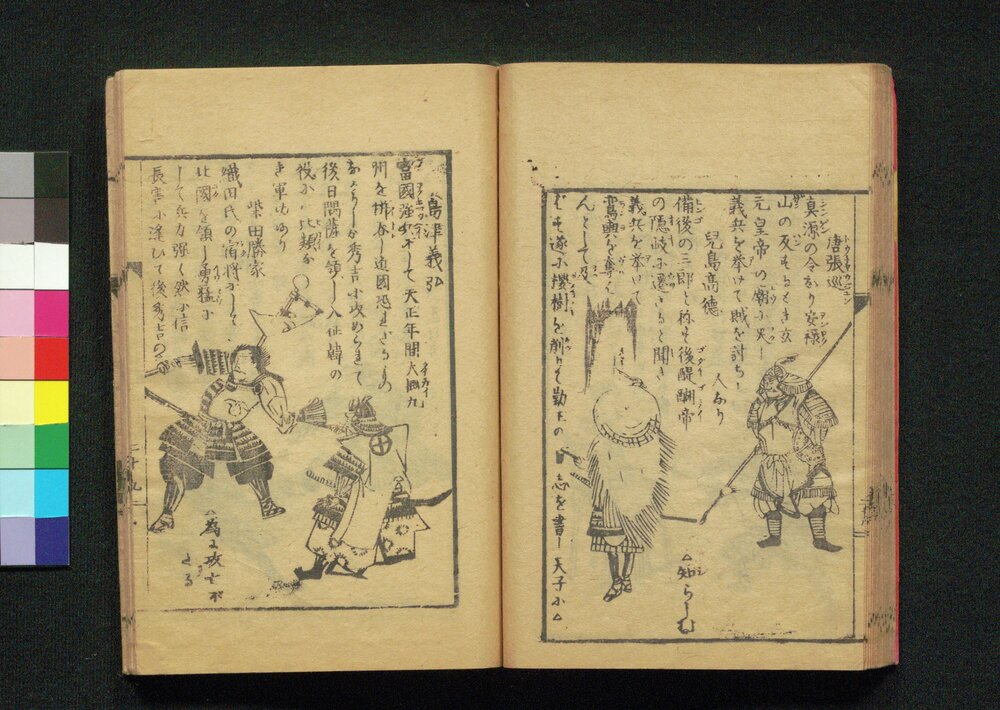 唐張巡
真源の令なり安禄
山の反せるとき玄
元皇帝の廟に哭し
義兵を挙けて賊を討ちし
人なり
兒島高徳
備後の三郎と称す後醍醐帝
の隠岐に遷さると聞き
義兵を挙けて
鳳輿を奪
んとして及
ばす遂に桜樹を削りて勤王の
志を書し天子に△
△知らしむ
島津義弘
富國強兵にして天正年間大隅九
州を併呑し近國恐れざるもの
なかりしが秀吉に攻められて
後日隅薩を領し入
征韓の
役に比類な
き軍功あり
柴田勝家
織田氏の宿将にして
北國を領し勇猛に
して兵力強く然に信
長害に逢ひて後秀吉の△
△為に攻亡ぼ
さる